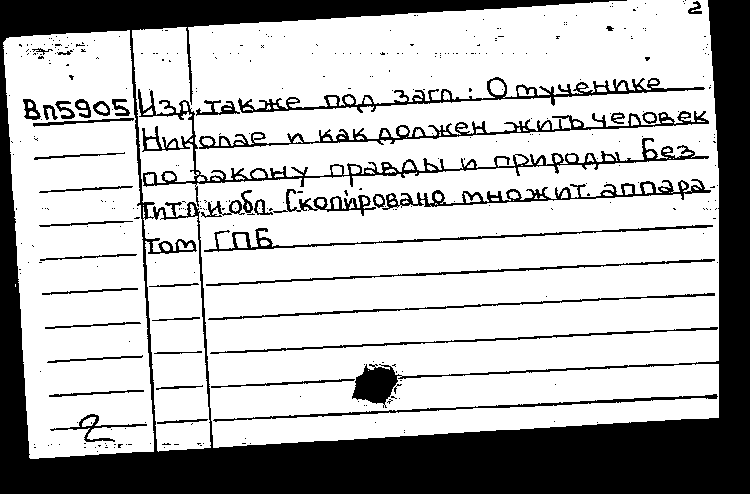 2
Вп5905 Изд. также под загл.: О мученике
Николае и как должен жить человек
по закону правды и природы. Без
тит.л. и обл. Скопировано множит. аппара
том ГПБ
2